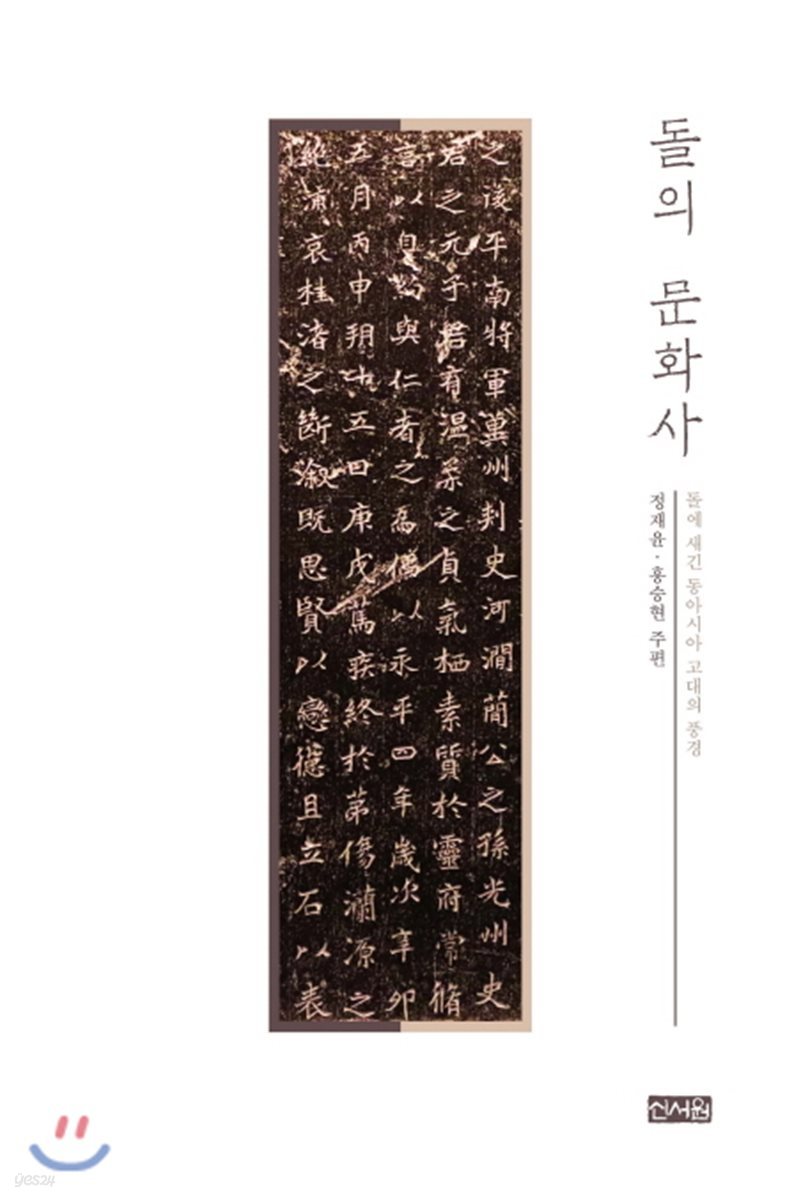 돌의 문화사
돌에 새긴 동아시아 고대의 풍경
정재윤·홍승현 주편
之後平南將軍冀州刺史河澗簡公之孫光州史
君之元子君有溫柔之貞氣栖素質於靈府常脩
言以自勗與仁者之爲儔以永平四年歲次辛卯
五月丙申朔十五日庚戌萬疾終於第傷瀟源之
絶浦哀桂渚之斷溆既思賢以戀德且立石以表
신서원
yes24